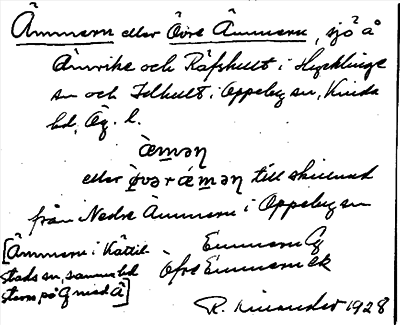 Ämmern eller Övre Ämmern, sjö å
Änvrike och Räfshult i Hycklinge
sn och Idhult i Oppeby sn, Kinda
hd, Ög. l.
æ̀mən
eller ø̀vər ǽmən till skillnad
från Nedre Ämmern i Oppeby sn
[Ämmern i Kättil
stads sn, samma hd
skrevs på G med Ä]
Emmern G
Öfre Emmern ek
R. 1928